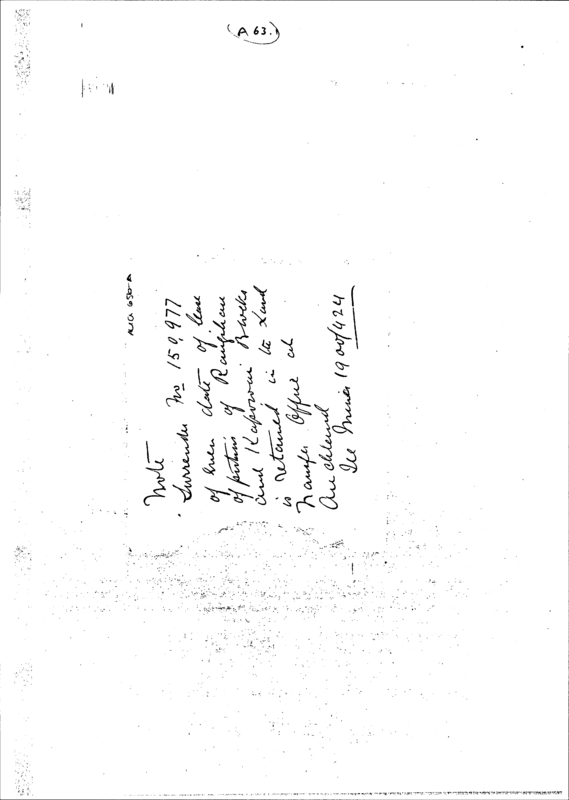 A 63.1
Note
Surrender No 150,977
of even date of lease
of portions of Rangihau
and Kapowai Blocks
is retained in the Land
Transfer Office at
Auckland
See Mines 1900/424